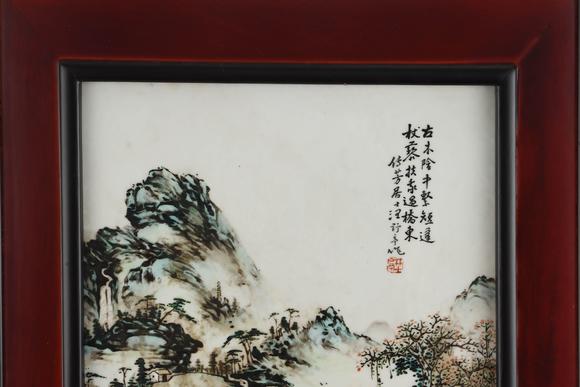 古木陰中繫短篷
杖藜扶我過橋東
傳芳居士汪野亭作